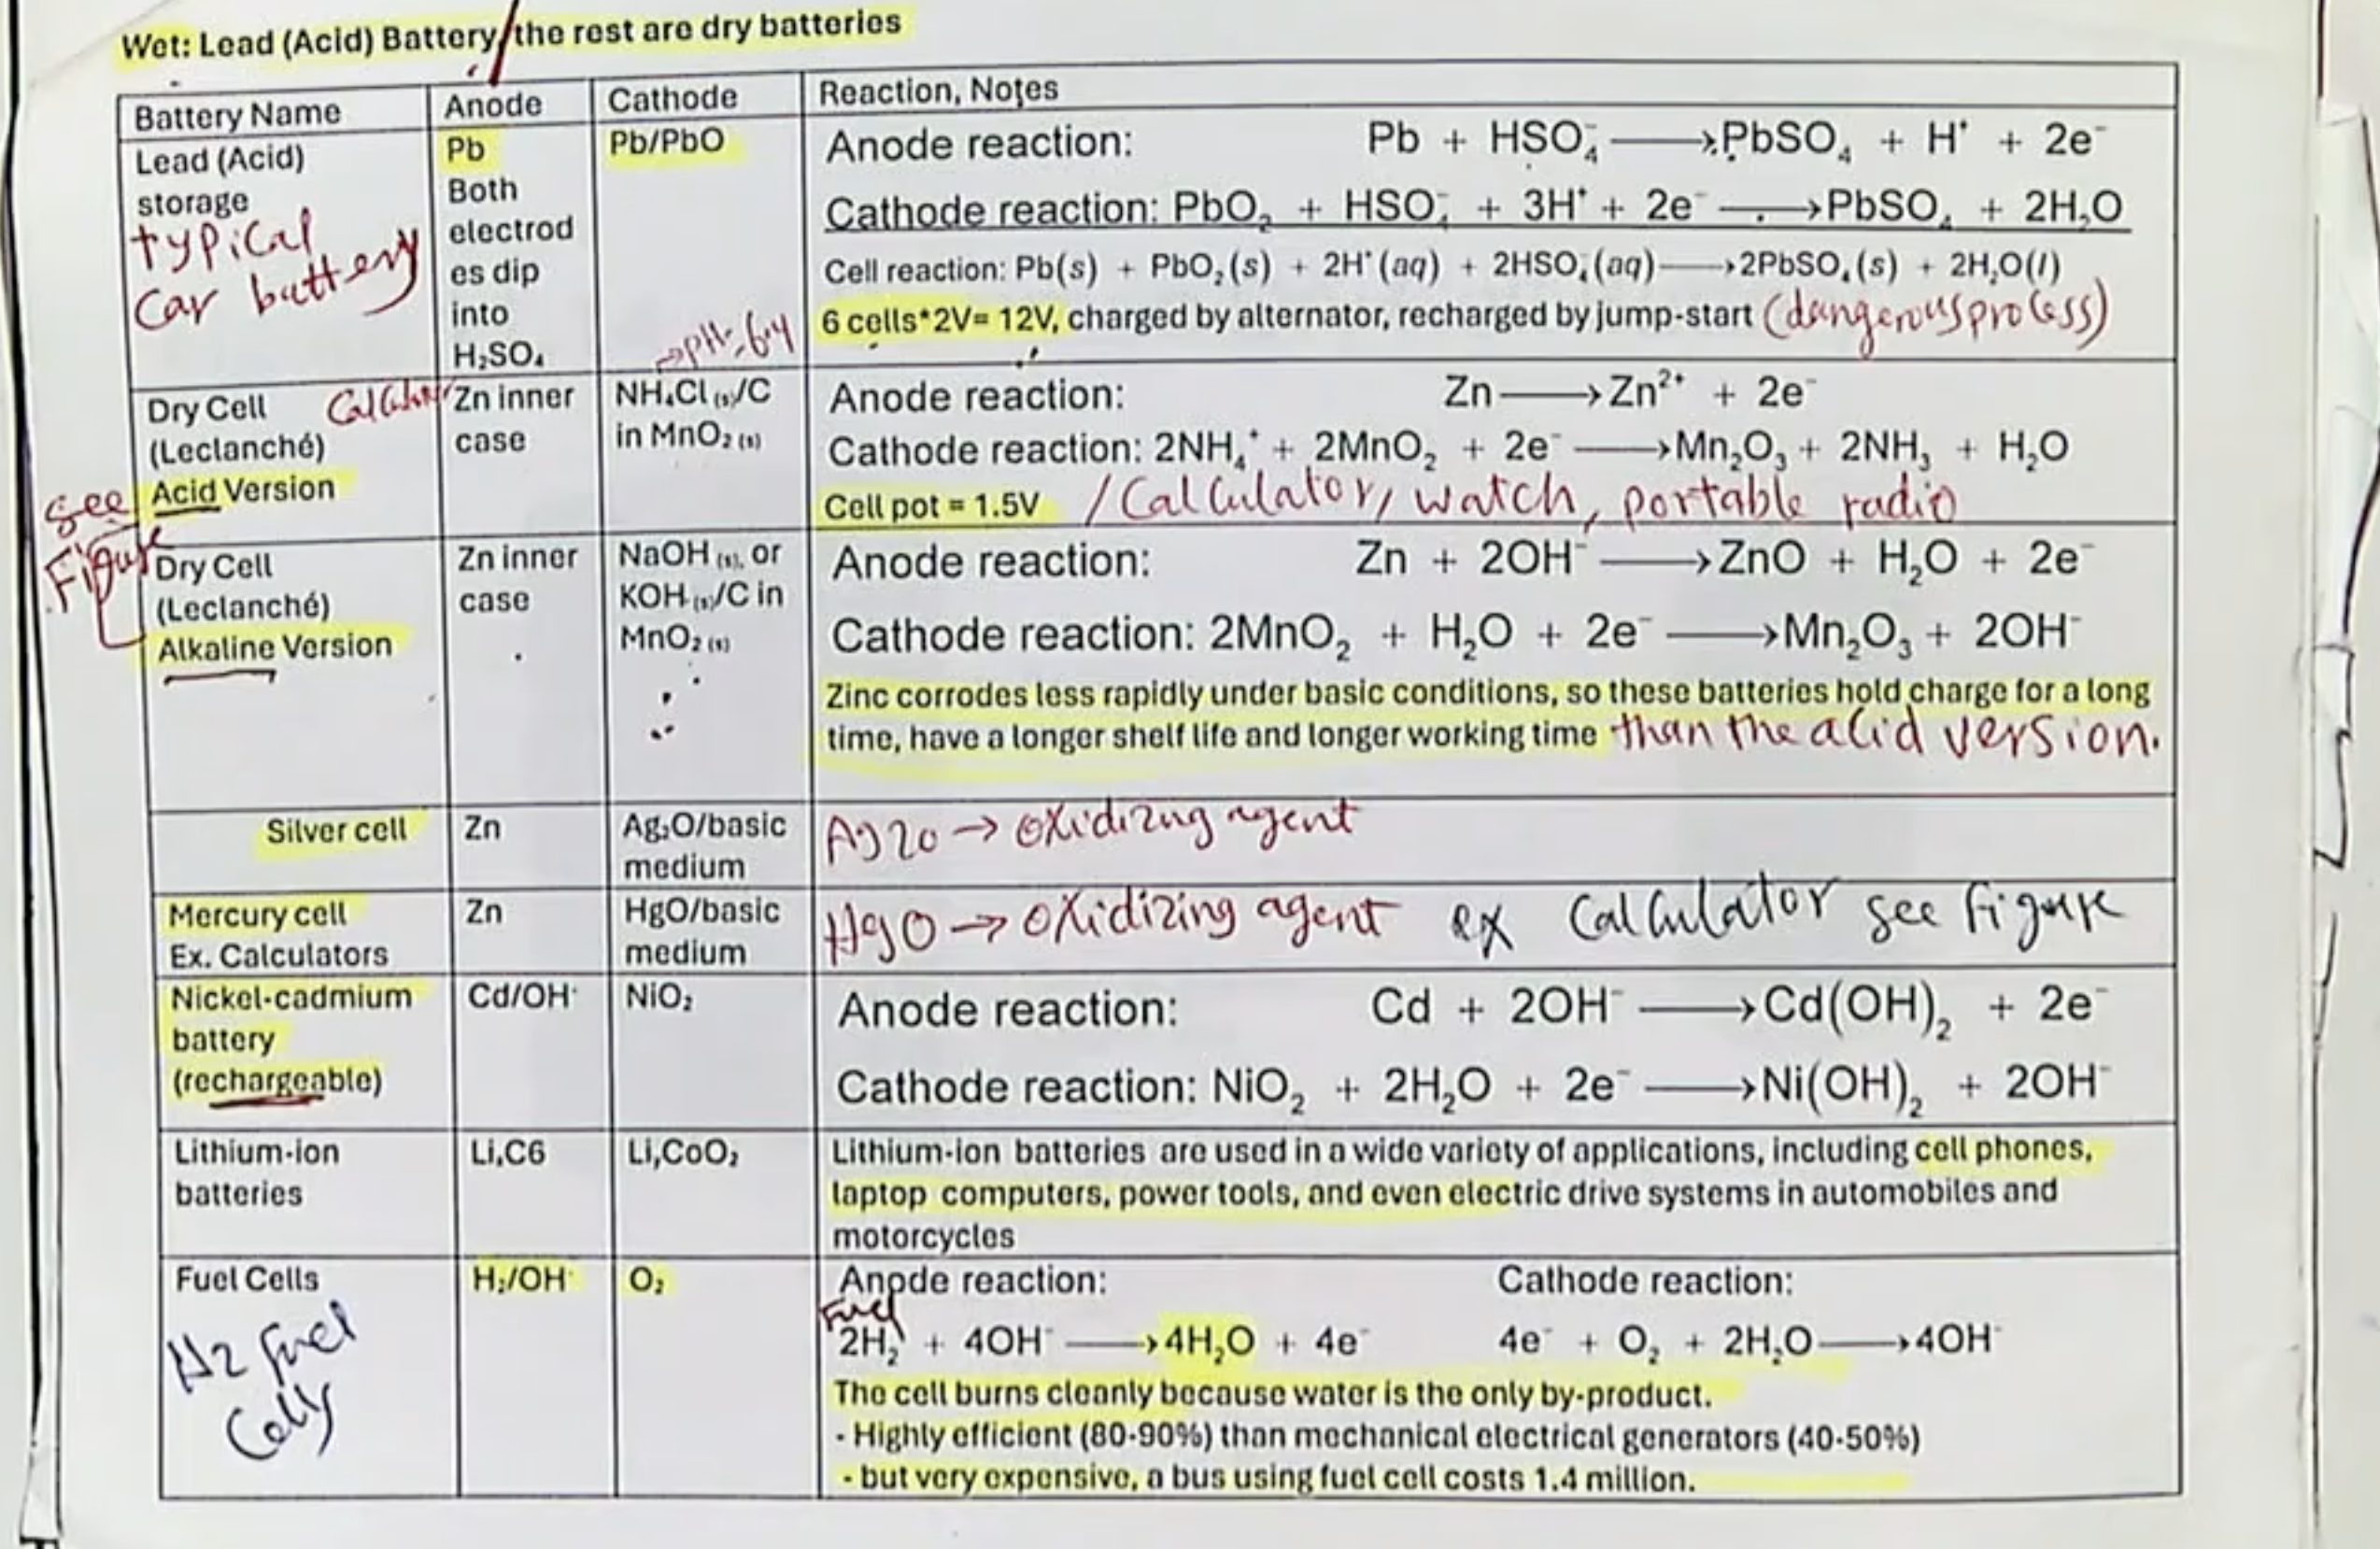 Wet: Lead (Acid) Battery, the rest are dry batteries
Battery Name | Anode | Cathode | Reaction, Notes
Lead (Acid)
storage
typical
car battery
Pb
Both
electrod
es dip
into
H₂SO₄
Pb/PbO
Anode reaction: Pb + HSO₄⁻ ⟶ PbSO₄ + H⁺ + 2e⁻
Cathode reaction: PbO₂ + HSO₄⁻ + 3H⁺ + 2e⁻ ⟶ PbSO₄ + 2H₂O
Cell reaction: Pb(s) + PbO₂(s) + 2H⁺(aq) + 2HSO₄⁻(aq) ⟶ 2PbSO₄(s) + 2H₂O(l)
6 cells*2V= 12V, charged by alternator, recharged by jump-start (dangerous process)
Dry Cell
(Leclanché)
Acid Version
see
Figure
Zn inner
case
NH₄Cl (s)/C
in MnO₂ (s)
Anode reaction: Zn ⟶ Zn²⁺ + 2e⁻
Cathode reaction: 2NH₄⁺ + 2MnO₂ + 2e⁻ ⟶ Mn₂O₃ + 2NH₃ + H₂O
Cell pot = 1.5V / Calculator, watch, portable radio
Dry Cell
(Leclanché)
Alkaline Version
Zn inner
case
NaOH (s), or
KOH (s)/C in
MnO₂ (s)
Anode reaction: Zn + 2OH⁻ ⟶ ZnO + H₂O + 2e⁻
Cathode reaction: 2MnO₂ + H₂O + 2e⁻ ⟶ Mn₂O₃ + 2OH⁻
Zinc corrodes less rapidly under basic conditions, so these batteries hold charge for a long
time, have a longer shelf life and longer working time than the acid version.
Silver cell
Zn
Ag₂O/basic
medium
Ag2O → oxidizing agent
Mercury cell
Ex. Calculators
Zn
HgO/basic
medium
HgO → oxidizing agent ex Calculator see Figure
Nickel-cadmium
battery
(rechargeable)
Cd/OH⁻
NiO₂
Anode reaction: Cd + 2OH⁻ ⟶ Cd(OH)₂ + 2e⁻
Cathode reaction: NiO₂ + 2H₂O + 2e⁻ ⟶ Ni(OH)₂ + 2OH⁻
Lithium-ion
batteries
Li,C6
Li,CoO₂
Lithium-ion batteries are used in a wide variety of applications, including cell phones,
laptop computers, power tools, and even electric drive systems in automobiles and
motorcycles
Fuel Cells
H2 Fuel
Cells
H₂/OH⁻
O₂
Anode reaction: Cathode reaction:
Fuel
2H₂ + 4OH⁻ ⟶ 4H₂O + 4e⁻ 4e⁻ + O₂ + 2H₂O ⟶ 4OH⁻
The cell burns cleanly because water is the only by-product.
- Highly efficient (80-90%) than mechanical electrical generators (40-50%)
- but very expensive, a bus using fuel cell costs 1.4 million.